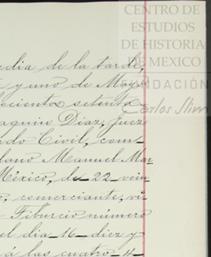 CENTRO DE
ESTUDIOS
DE HISTORIA
DE MEXICO
FUNDACIÓN
Carlos Slim
edia de la tarde,
y uno de May
ecientos setenta
aquino Diaz, Juez
ado Civil, com
dano Manuel Mar
México, de 22 vein
o, comerciante, vi
Tiburcio número
el dia 16 diez y
á las cuatro 4